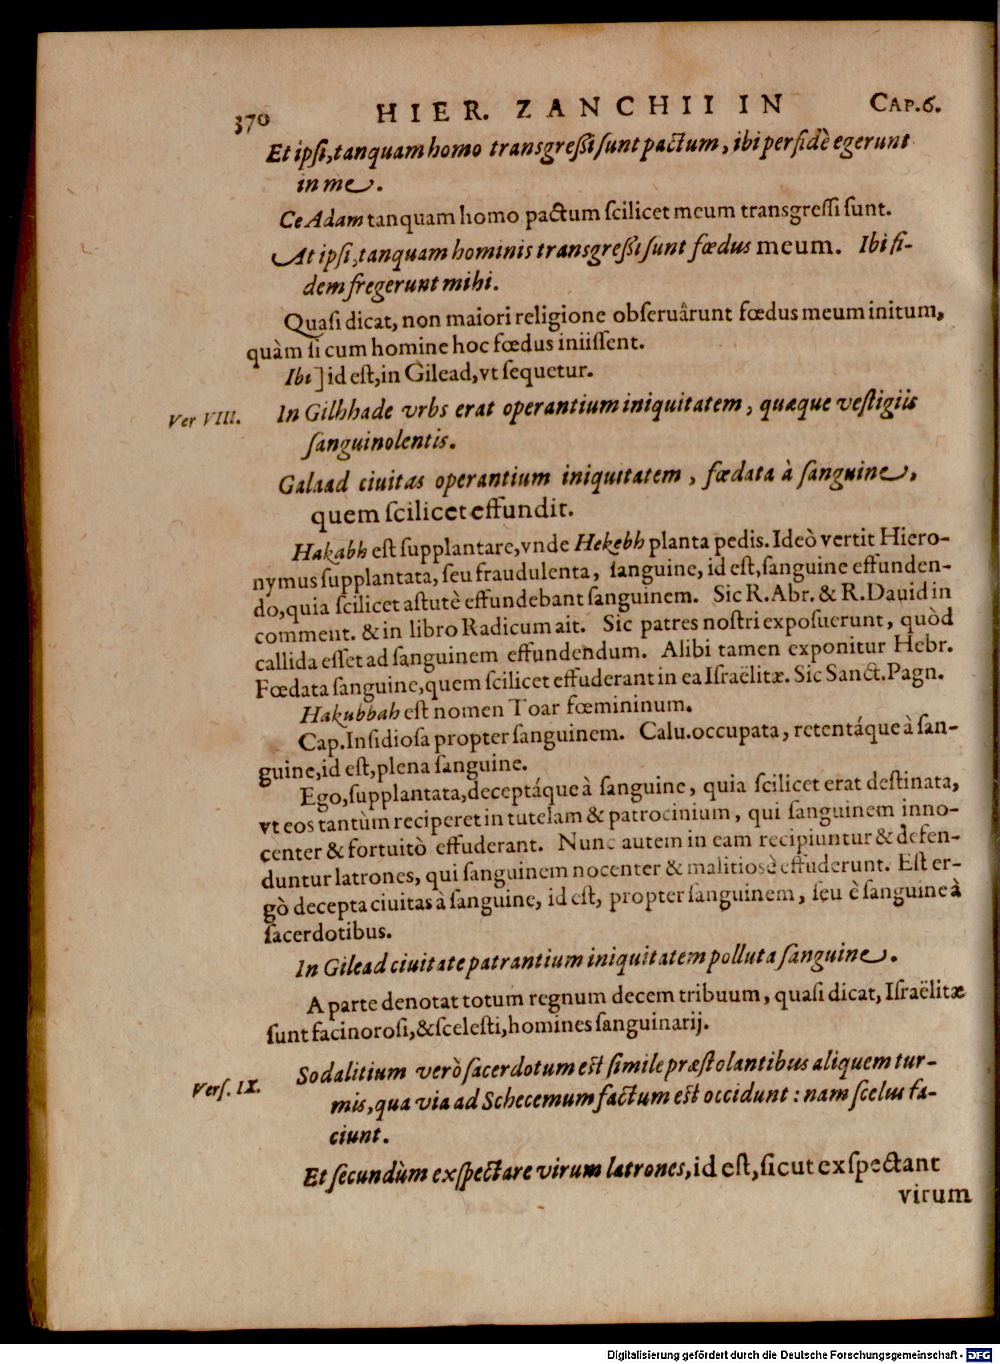 370 HIER. ZANCHII IN CAP.6.
Et ipſi, tanquam homo transgreßi ſunt pactum, ibi perfidè egerunt
in me.
Ce Adam tanquam homo pactum ſcilicet meum transgreſſi ſunt.
At ipſi, tanquam hominis transgreßi ſunt fœdus meum. Ibi fi-
dem fregerunt mihi.
Quaſi dicat, non maiori religione obſeruârunt fœdus meum initum,
quàm ſi cum homine hoc fœdus iniiſſent.
Ibi] id eſt, in Gilead, vt ſequetur.
Ver VIII. In Gilhhade vrbs erat operantium iniquitatem, quæque veſtigiis
ſanguinolentis.
Galaad ciuitas operantium iniquitatem, fœdata à ſanguine,
quem ſcilicet effundit.
Hakabh eſt ſupplantare, vnde Hekebh planta pedis. Ideò vertit Hiero-
nymus ſupplantata, ſeu fraudulenta, ſanguine, id eſt, ſanguine effunden-
do, quia ſcilicet aſtutè effundebant ſanguinem. Sic R. Abr. & R. Dauid in
comment. & in libro Radicum ait. Sic patres noſtri expoſuerunt, quòd
callida eſſet ad ſanguinem effundendum. Alibi tamen exponitur Hebr.
Fœdata ſanguine, quem ſcilicet effuderant in ea Iſraëlitæ. Sic Sanct. Pagn.
Hakubbah eſt nomen Toar fœmininum.
Cap. Inſidioſa propter ſanguinem. Calu. occupata, retentáque à ſan-
guine, id eſt, plena ſanguine.
Ego, ſupplantata, deceptáque à ſanguine, quia ſcilicet erat deſtinata,
vt eos tantùm reciperet in tutelam & patrocinium, qui ſanguinem inno-
center & fortuitò effuderant. Nunc autem in eam recipiuntur & defen-
duntur latrones, qui ſanguinem nocenter & malitiosè effuderunt. Eſt er-
gò decepta ciuitas à ſanguine, id eſt, propter ſanguinem, ſeu è ſanguine à
ſacerdotibus.
In Gilead ciuitate patrantium iniquitatem polluta ſanguine.
A parte denotat totum regnum decem tribuum, quaſi dicat, Iſraëlitæ
ſunt facinoroſi, & ſceleſti, homines ſanguinarij.
Verſ. IX. Sodalitium verò ſacerdotum eſt ſimile præſtolantibus aliquem tur-
mis, qua via ad Schecemum factum eſt occidunt: nam ſcelus fa-
ciunt.
Et ſecundùm exſpectare virum latrones, id eſt, ſicut exſpectant
virum
Digitalisierung gefördert durch die Deutsche Forschungsgemeinschaft - DFG